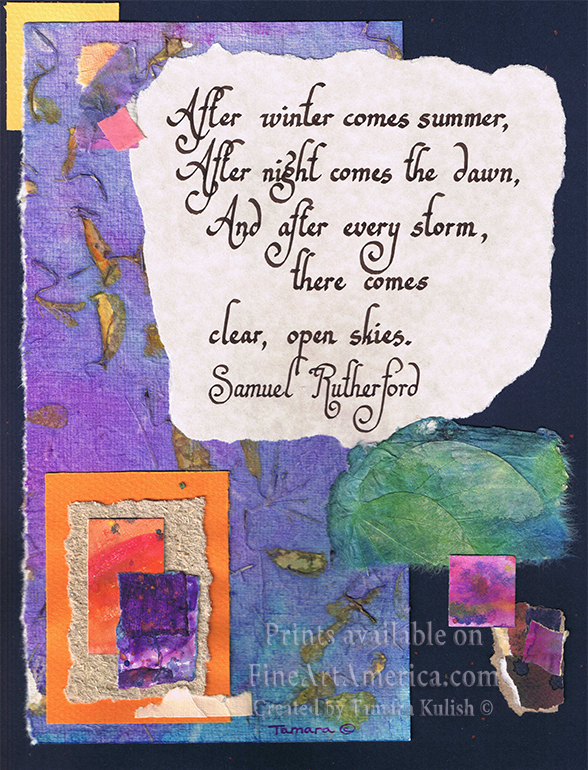 After winter comes summer,
After night comes the dawn,
And after every storm,
there comes
clear, open skies.
Samuel Rutherford
Prints available on
FineArtAmerica.com
Created by Tamara Kulish ©
Tamara ©